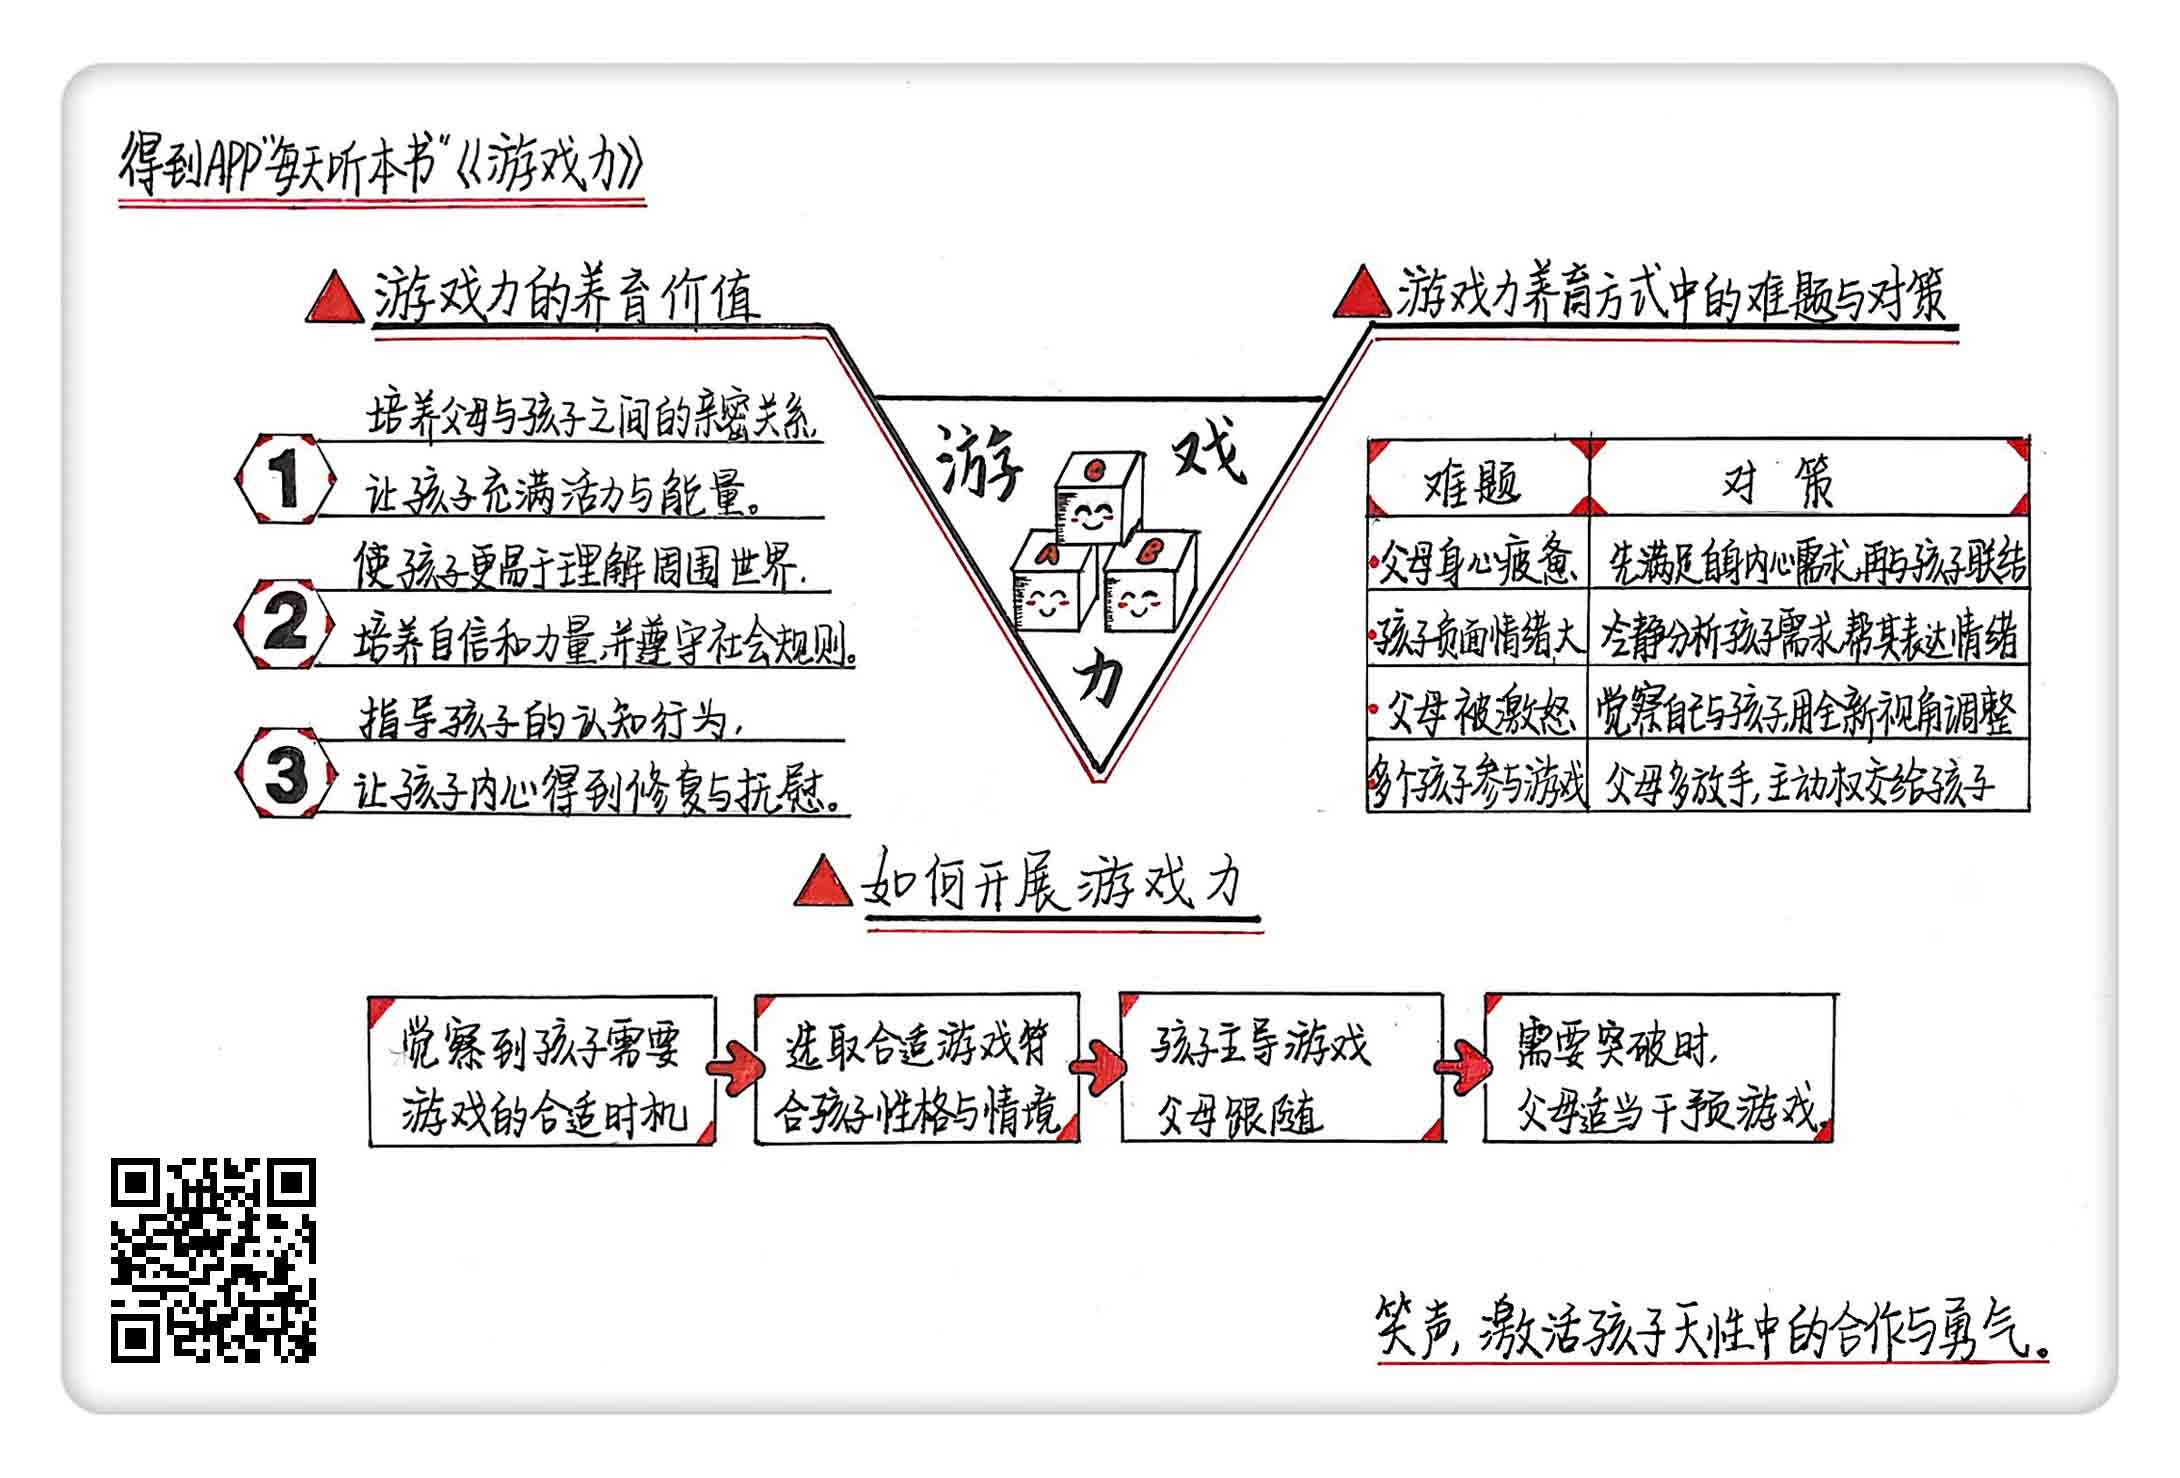 得到APP"每天听本书"《游戏力》
游戏力的养育价值
1
培养父母与孩子之间的亲密关系,
让孩子充满活力与能量。
2
使孩子更易于理解周围世界,
培养自信和力量,并遵守社会规则。
3
指导孩子的认知行为,
让孩子内心得到修复与抚慰。
游 戏
C
A B
力
游戏力养育方式中的难题与对策
难题 对策
父母身心疲惫 先满足自身内心需求,再与孩子联结
孩子负面情绪大 冷静分析孩子需求,帮其表达情绪
父母被激怒 觉察自己与孩子,用全新视角调整
多个孩子参与游戏 父母多放手,主动权交给孩子
如何开展游戏力
觉察到孩子需要
游戏的合适时机
选取合适游戏符
合孩子性格与情境
孩子主导游戏
父母跟随
需要突破时,
父母适当干预游戏。
笑声,激活孩子天性中的合作与勇气。